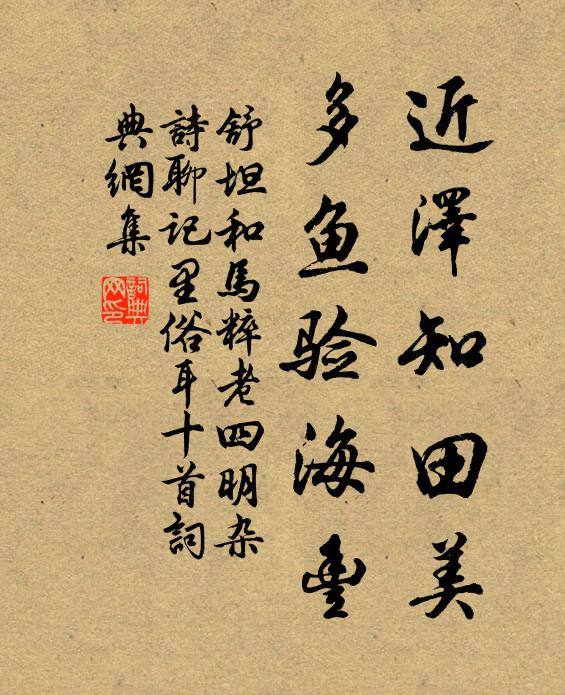 近澤知田美
多鱼验海豊
舒坦和馬粹老四明杂
詩聊記里俗耳十首詞
典網集
詞典网印